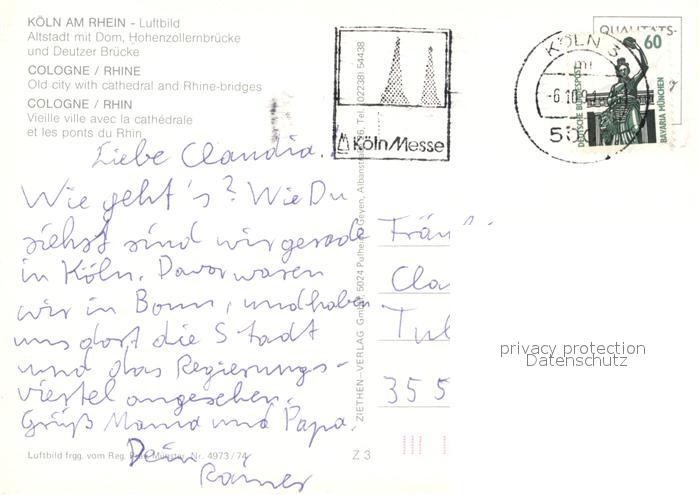 KÖLN AM RHEIN - Luftbild
Altstadt mit Dom, Hohenzollernbrücke
und Deutzer Brücke
COLOGNE / RHINE
Old city with cathedral and Rhine-bridges
COLOGNE / RHIN
Vieille ville avec la cathédrale
et les ponts du Rhin
KölnMesse
KÖLN 3
-6.10.
QUALITÄTS-
60
DEUTSCHE BUNDESPOST
BAVARIA MÜNCHEN
Liebe Claudia.
Wie geht's? Wie Du
siehst sind wir gerade
in Köln. Davor waren
wir in Bonn, und haben
uns dort die Stadt
und das Regierungs-
viertel angesehen.
Grüß Mama und Papa.
Dein
Rainer
Cla
Tul
35 5
ZIETHEN-VERLAG GmbH, 5024 Pulheim
Tel. (02238) 54438
Luftbild frgg. vom Reg. Präs. Münster, Nr. 4973/74
Z 3
privacy protection
Datenschutz